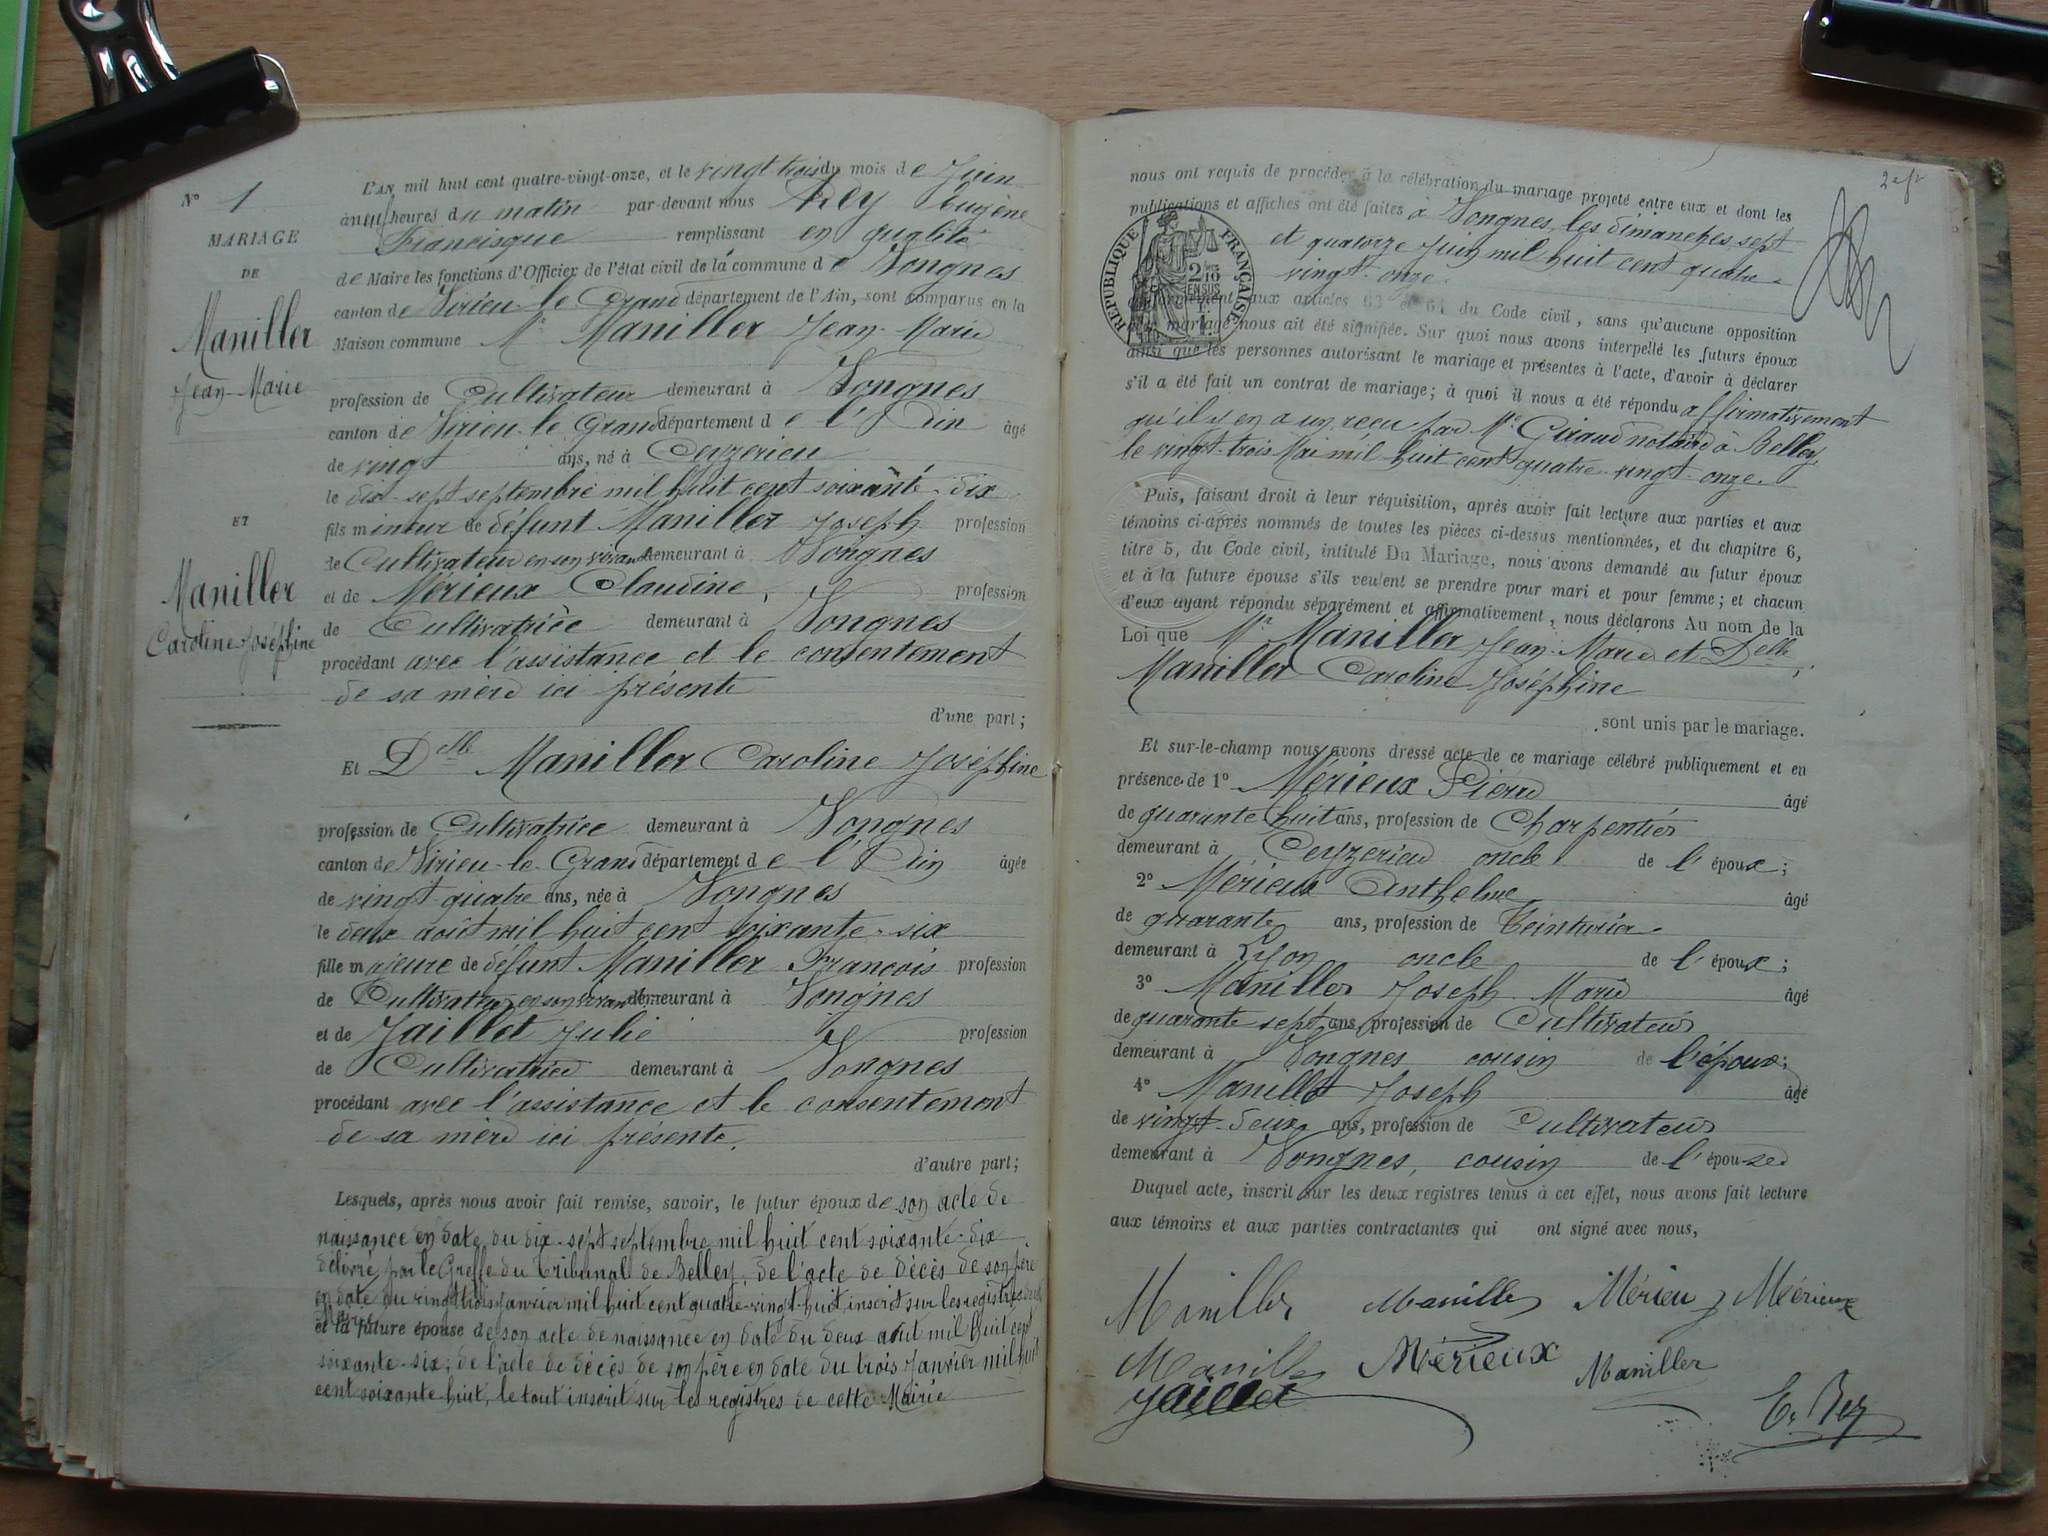 N° 1
MARIAGE
DE
Maniller
Jean-Marie
ET
Maniller
Caroline Joséphine
L'AN mil huit cent quatre-vingt-onze, et le vingt trois du mois de Juin
à neuf heures du matin par-devant nous Rey Eugène
Francisque remplissant en qualité
de Maire les fonctions d'Officier de l'état civil de la commune de Vongnes
canton de Virieu-le-Grand département de l'Ain, sont comparus en la
Maison commune Mr Maniller Jean-Marie
profession de Cultivateur demeurant à Vongnes
canton de Virieu-le-Grand département de l'Ain âgé
de vingt ans, né à Ceyzerieu
le dix-sept septembre mil huit cent soixante-dix
fils mineur de défunt Maniller Joseph profession
de Cultivateur en son vivant demeurant à Vongnes
et de Mérieux Claudine, profession
de Cultivatrice demeurant à Vongnes
procédant avec l'assistance et le consentement
de sa mère ici présente
d'une part;
Et Delle Maniller Caroline Joséphine
profession de Cultivatrice demeurant à Vongnes
canton de Virieu-le-Grand département de l'Ain âgée
de vingt-quatre ans, née à Vongnes
le deux août mil huit cent soixante-six
fille majeure de défunt Maniller François profession
de Cultivateur en son vivant demeurant à Vongnes
et de Jaillet Julie profession
de Cultivatrice demeurant à Vongnes
procédant avec l'assistance et le consentement
de sa mère ici présente.
d'autre part;
Lesquels, après nous avoir fait remise, savoir, le futur époux de son acte de
naissance en date du dix-sept septembre mil huit cent soixante-dix
délivré par le Greffe du Tribunal de Belley, de l'acte de décès de son père
en date du vingt trois Janvier mil huit cent quatre-vingt-huit, inscrit sur les registres
Mairie
et la future épouse de son acte de naissance en date du deux août mil huit cent
soixante-six; de l'acte de décès de son père en date du trois Janvier mil huit
cent soixante-huit, le tout inscrit sur les registres de cette Mairie
nous ont requis de procéder à la célébration du mariage projeté entre eux et dont les
publications et affiches ont été faites à Vongnes, les dimanches sept
et quatorze Juin mil huit cent quatre-
vingt-onze.
RÉPUBLIQUE FRANÇAISE
conformément aux articles 63 et 64 du Code civil, sans qu'aucune opposition
audit mariage nous ait été signifiée. Sur quoi nous avons interpellé les futurs époux
ainsi que les personnes autorisant le mariage et présentes à l'acte, d'avoir à déclarer
s'il a été fait un contrat de mariage; à quoi il nous a été répondu affirmativement
qu'il y en a un reçu par Me Giraud notaire à Belley
le vingt-trois Mai mil huit cent quatre-vingt-onze.
Puis, faisant droit à leur réquisition, après avoir fait lecture aux parties et aux
témoins ci-après nommés de toutes les pièces ci-dessus mentionnées, et du chapitre 6,
titre 5, du Code civil, intitulé Du Mariage, nous avons demandé au futur époux
et à la future épouse s'ils veulent se prendre pour mari et pour femme; et chacun
d'eux ayant répondu séparément et affirmativement, nous déclarons Au nom de la
Loi que Mr Maniller Jean-Marie et Delle
Maniller Caroline Joséphine
sont unis par le mariage.
Et sur-le-champ nous avons dressé acte de ce mariage célébré publiquement et en
présence de 1° Mérieux Pierre âgé
de quarante huit ans, profession de Charpentier
demeurant à Ceyzerieu oncle de l'époux;
2° Mérieux Anthelme âgé
de quarante ans, profession de Teinturier
demeurant à Lyon oncle de l'époux;
3° Maniller Joseph Marie âgé
de quarante sept ans, profession de Cultivateur
demeurant à Vongnes cousin de l'époux;
4° Maniller Joseph âgé
de vingt-deux ans, profession de Cultivateur
demeurant à Vongnes, cousin de l'épouse
Duquel acte, inscrit sur les deux registres tenus à cet effet, nous avons fait lecture
aux témoins et aux parties contractantes qui ont signé avec nous,
Maniller Maniller Mérieu Mérieux
Maniller Mérieux Maniller
Jaillet E. Rey